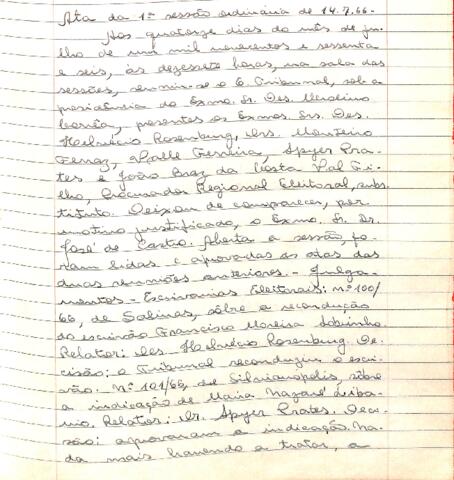 Ata da 1ª sessão ordinária de 14.7.66.
Aos quatorze dias do mês de ju-
lho de um mil novecentos e sessenta
e seis, às dezessete horas, na sala das
sessões, reuniu-se o E. Tribunal, sob a
presidência do Exmo. Sr. Des. Marolino
Corrêa, presentes os Exmos. Srs. Des.
Helvécio Rosenburg, Drs. Monteiro
Ferraz, Valle Ferreira, Spyer Pra-
tes e João Braz da Costa Val Fi-
lho, Procurador Regional Eleitoral, subs-
tituto. Deixou de comparecer, por
motivo justificado, o Exmo. Sr. Dr.
José de Castro. Aberta a sessão, fo-
ram lidas e aprovadas as atas das
duas reuniões anteriores. - Julga-
mentos - Escrivanias Eleitorais: nº 100/
66, de Salinas, sôbre a recondução
do escrivão Francisco Moreira Sobrinho.
Relator: Des. Helvécio Rosenburg. De-
cisão: o Tribunal reconduziu o escri-
vão. Nº 101/66, de Silvianópolis, sôbre
a indicação de Maria Nazaré Liba-
nio. Relator: Dr. Spyer Prates. Deci-
são: aprovaram a indicação. Na-
da mais havendo a tratar, a